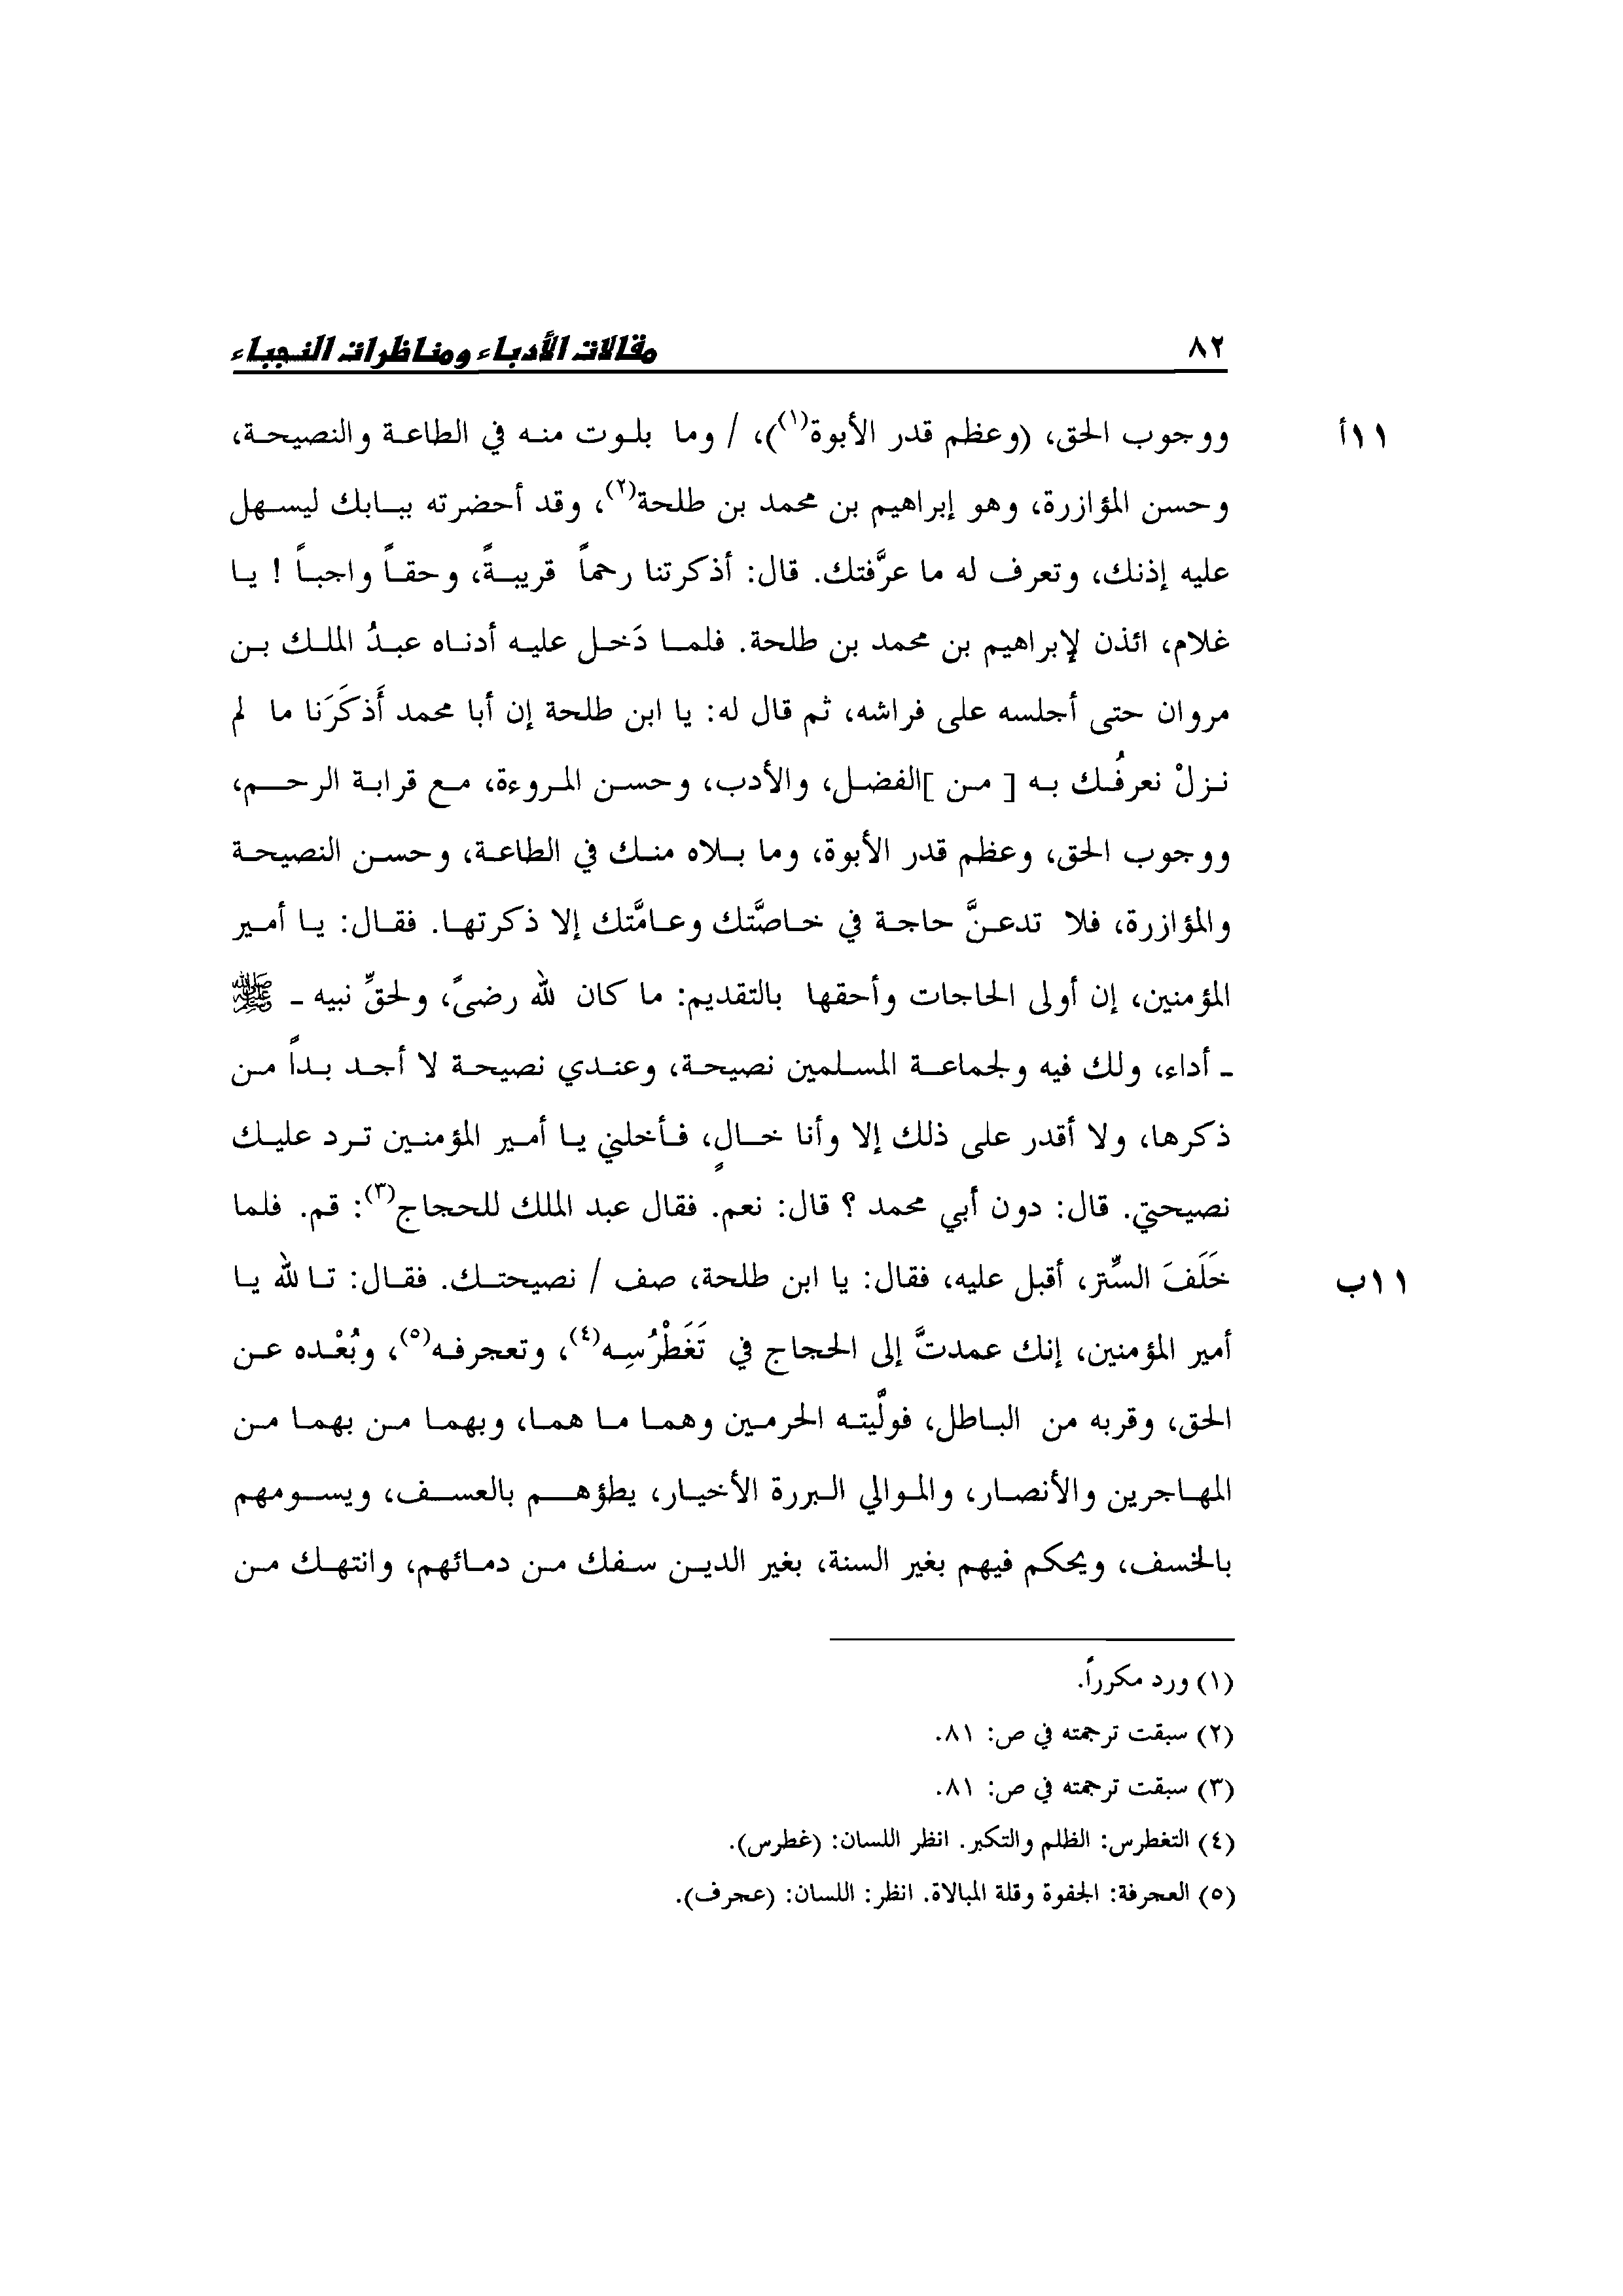 ٨٢ مقالات الأدباء ومناظرات النجباء
١١أ ووجوب الحق، (وعظم قدر الأبوة(١))، / وما بلوت منه في الطاعة والنصيحة،
وحسن المؤازرة، وهو إبراهيم بن محمد بن طلحة(٢)، وقد أحضرته ببابك ليسهل
عليه إذنك، وتعرف له ما عرَّفتك. قال: أذكرتنا رحماً قريبةً، وحقاً واجباً ! يا
غلام، ائذن لإبراهيم بن محمد بن طلحة. فلما دَخل عليه أدناه عبدُ الملك بن
مروان حتى أجلسه على فراشه، ثم قال له: يا ابن طلحة إن أبا محمد أَذكَرَنا ما لم
نزلْ نعرفُك به [ من ]الفضل، والأدب، وحسن المروءة، مع قرابة الرحم،
ووجوب الحق، وعظم قدر الأبوة، وما بلاه منك في الطاعة، وحسن النصيحة
والمؤازرة، فلا تدعنَّ حاجة في خاصَّتك وعامَّتك إلا ذكرتها. فقال: يا أمير
المؤمنين، إن أولى الحاجات وأحقها بالتقديم: ما كان لله رضىً، ولحقِّ نبيه ـ ﷺ
ـ أداء، ولك فيه ولجماعة المسلمين نصيحة، وعندي نصيحة لا أجد بداً من
ذكرها، ولا أقدر على ذلك إلا وأنا خالٍ، فأخلني يا أمير المؤمنين ترد عليك
نصيحتي. قال: دون أبي محمد ؟ قال: نعم. فقال عبد الملك للحجاج(٣): قم. فلما
١١ب خَلَفَ السِّتر، أقبل عليه، فقال: يا ابن طلحة، صف / نصيحتك. فقال: تالله يا
أمير المؤمنين، إنك عمدتَّ إلى الحجاج في تَغَطْرُسِه(٤)، وتعجرفه(٥)، وبُعْده عن
الحق، وقربه من الباطل، فولَّيته الحرمين وهما ما هما، وبهما من بهما من
المهاجرين والأنصار، والموالي البررة الأخيار، يطؤهم بالعسف، ويسومهم
بالخسف، ويحكم فيهم بغير السنة، بغير الدين سفك من دمائهم، وانتهك من
(١) ورد مكرراً.
(٢) سبقت ترجمته في ص: ٨١.
(٣) سبقت ترجمته في ص: ٨١.
(٤) التغطرس: الظلم والتكبر. انظر اللسان: (غطرس).
(٥) العجرفة: الجفوة وقلة المبالاة. انظر: اللسان: (عجرف).